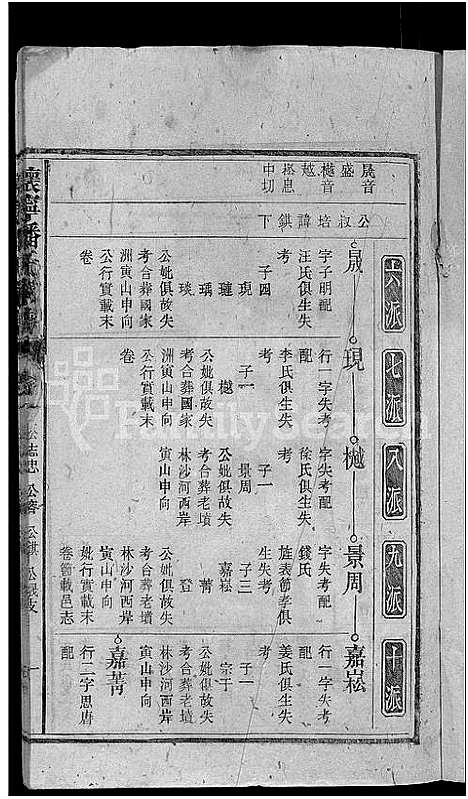 六派
七派
八派
九派
十派
晟音盛
樾音越
崧息中切
公叔培諱錤下
晟
字子明配
汪氏俱生失
考
子四
現
璉
瑀
琰
公妣俱故失
考合葬國家
洲寅山申向
公行實載末
卷
現
行一字失考
配
李氏俱生失
考
子一
樾
公妣俱故失
考合葬國家
洲寅山申向
公行實載末
卷
樾
字失考配
徐氏俱生失
考
子一
景周
公妣俱故失
考合葬老墳
林沙河西岸
寅山申向
景周
字失考配
錢氏
旌表節孝俱
生失考
子三
嘉崧
嘉菁
登
公妣俱故失
考合葬老墳
林沙河西岸
寅山申向
妣行實載末
卷節載邑志
嘉崧
行一字失考
配
姜氏俱生失
考
子一
宗于
公妣俱故失
考合葬老墳
林沙河西岸
寅山申向
嘉菁
行二字思唐
配
FamilySearch